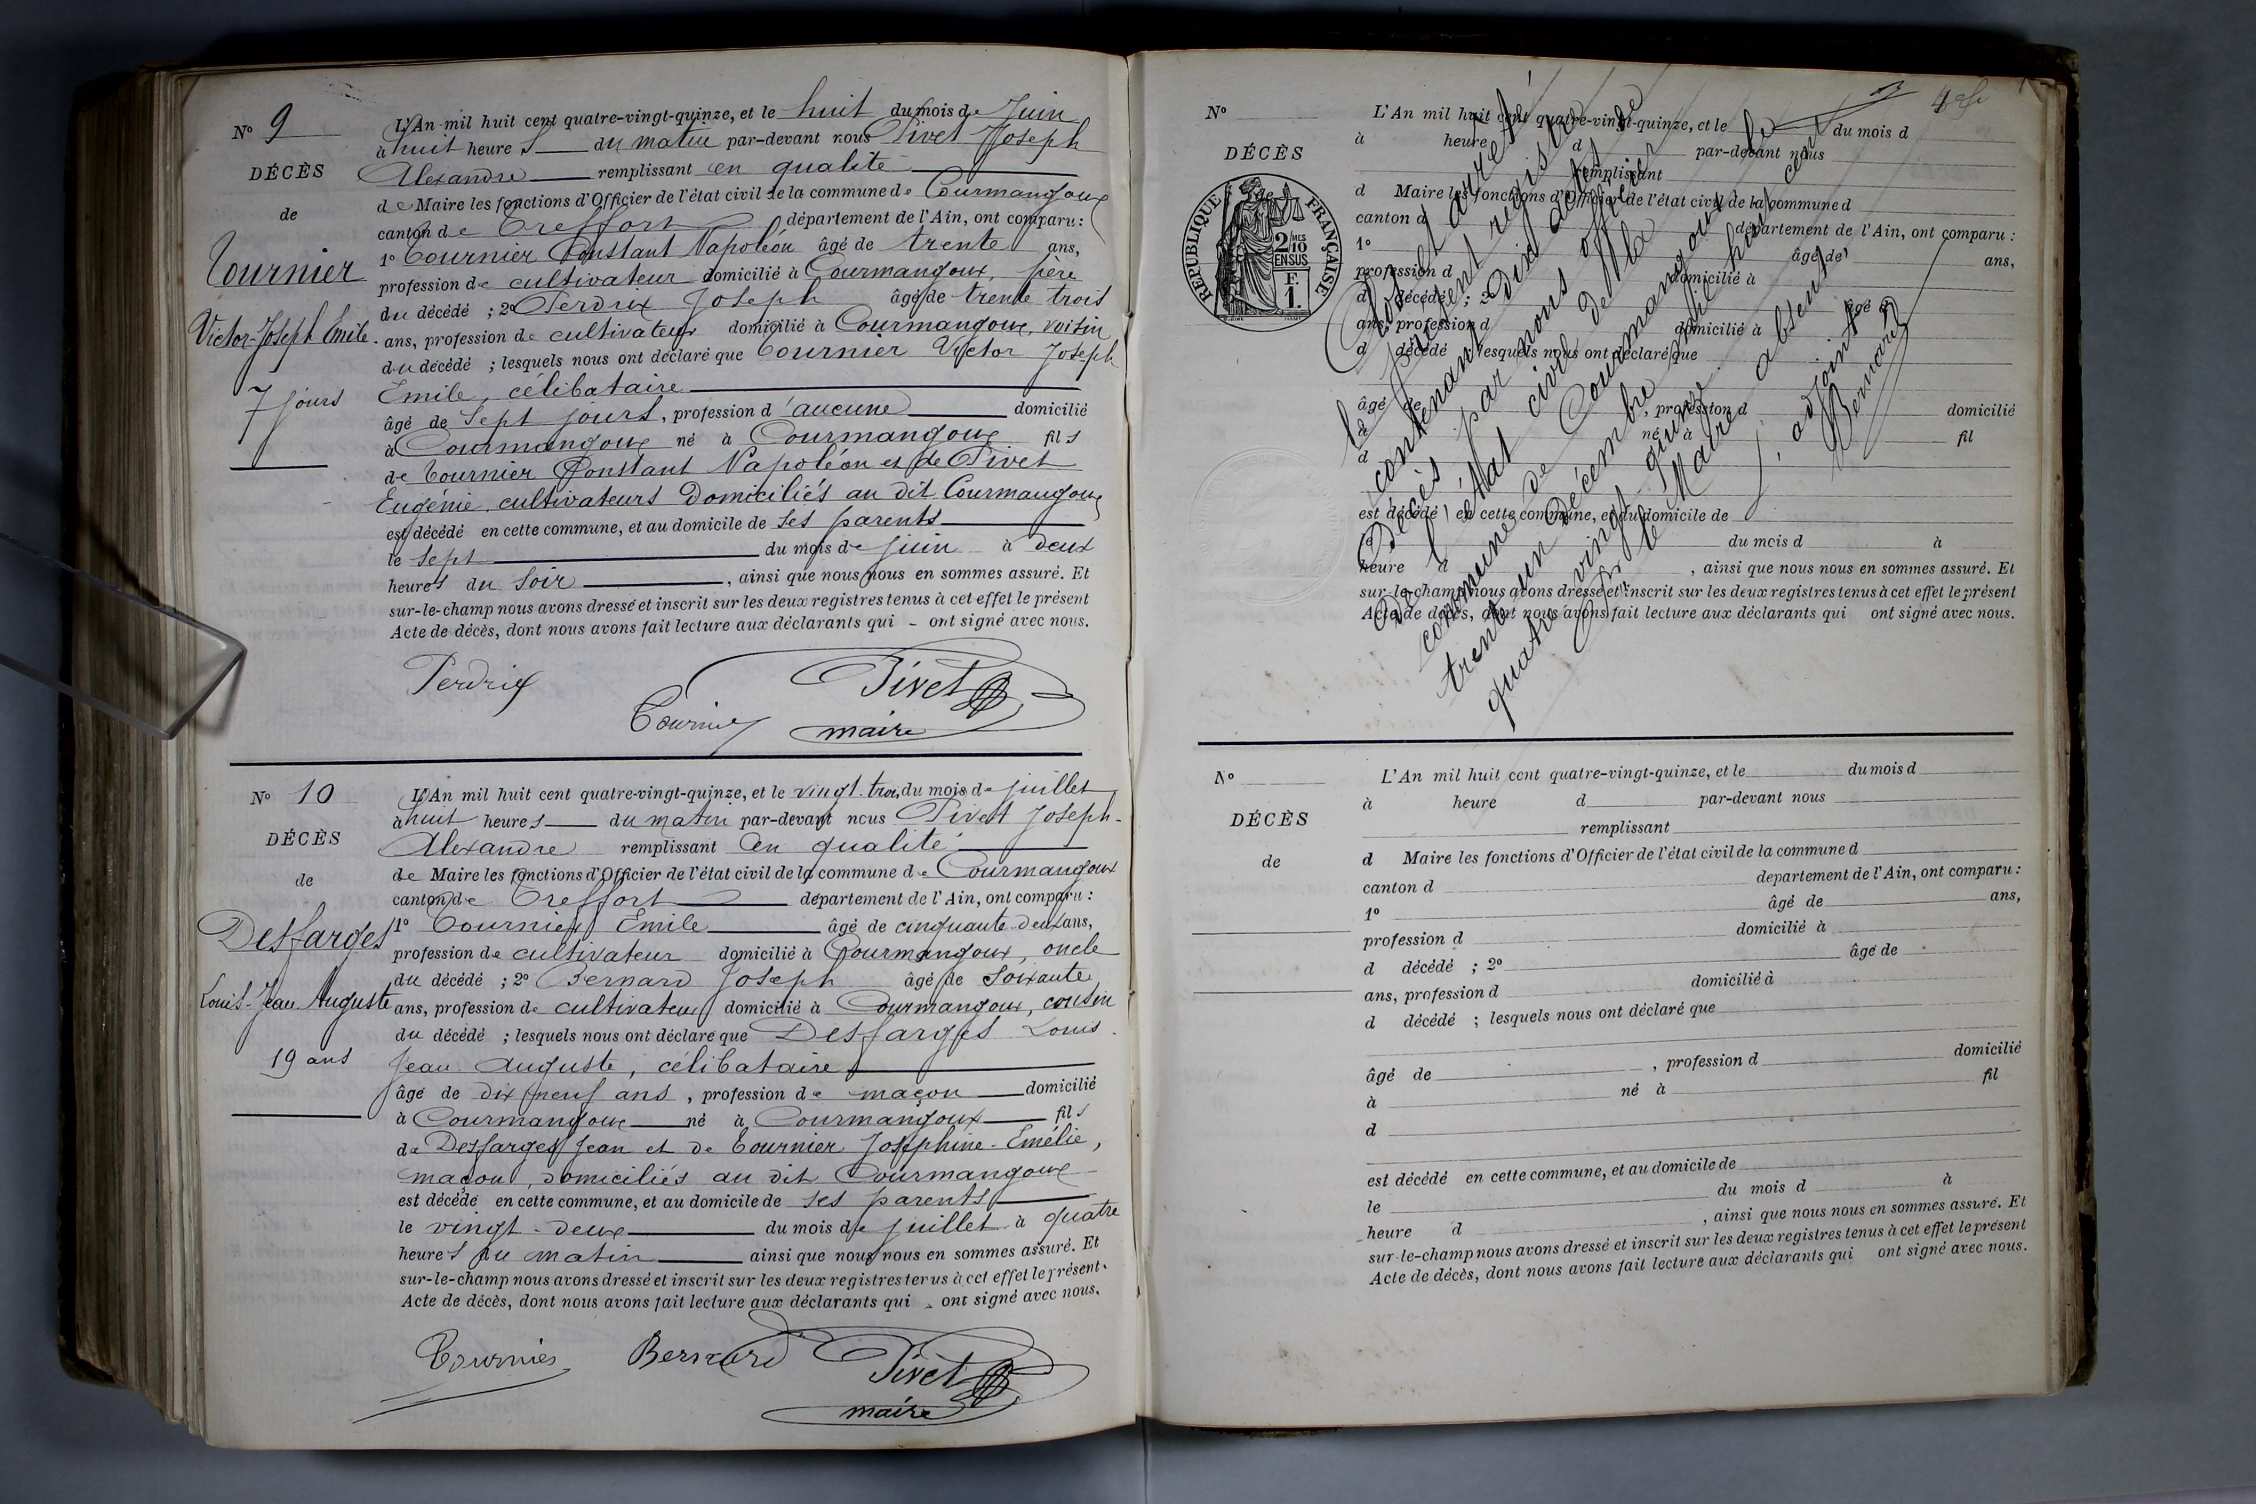 N° 9
DÉCÈS
de
Tournier
Victor-Joseph Emile.
7 jours
L'An mil huit cent quatre-vingt-quinze, et le huit du mois de Juin
à huit heures du matin par-devant nous Pivet Joseph
Alexandre remplissant en qualité
de Maire les fonctions d'Officier de l'état civil de la commune de Courmangoux
canton de Treffort département de l'Ain, ont comparu :
1° Tournier Constant Napoléon âgé de trente ans,
profession de cultivateur domicilié à Courmangoux, père
du décédé ; 2° Perdrix Joseph âgé de trente trois
ans, profession de cultivateur domicilié à Courmangoux, voisin
du décédé ; lesquels nous ont déclaré que Tournier Victor Joseph
Emile, célibataire
âgé de sept jours, profession d'aucune domicilié
à Courmangoux né à Courmangoux fils
de Tournier Constant Napoléon et de Pivet
Eugénie, cultivateurs domiciliés au dit Courmangoux
est décédé en cette commune, et au domicile de ses parents
le sept du mois de juin à deux
heures du soir, ainsi que nous nous en sommes assuré. Et
sur-le-champ nous avons dressé et inscrit sur les deux registres tenus à cet effet le présent
Acte de décès, dont nous avons fait lecture aux déclarants qui - ont signé avec nous.
Perdrix
Pivet
Tournier
maire
N° 10
DÉCÈS
de
Desfarges
Louis-Jean Auguste
19 ans
L'An mil huit cent quatre-vingt-quinze, et le vingt-trois du mois de juillet
à huit heures du matin par-devant nous Pivet Joseph-
Alexandre remplissant en qualité
de Maire les fonctions d'Officier de l'état civil de la commune de Courmangoux
canton de Treffort département de l'Ain, ont comparu :
1° Tournier Emile âgé de cinquante-deux ans,
profession de cultivateur domicilié à Courmangoux, oncle
du décédé ; 2° Bernard Joseph âgé de soixante
ans, profession de cultivateur domicilié à Courmangoux, cousin
du décédé ; lesquels nous ont déclaré que Desfarges Louis
Jean Auguste, célibataire
âgé de dix neuf ans, profession de maçon domicilié
à Courmangoux né à Courmangoux fils
de Desfarges Jean et de Tournier Joséphine-Emélie,
maçon, domiciliés au dit Courmangoux
est décédé en cette commune, et au domicile de ses parents
le vingt-deux du mois de juillet à quatre
heures du matin ainsi que nous nous en sommes assuré. Et
sur-le-champ nous avons dressé et inscrit sur les deux registres tenus à cet effet le présent
Acte de décès, dont nous avons fait lecture aux déclarants qui - ont signé avec nous.
Tournier
Bernard
Pivet
maire
N°
DÉCÈS
de
RÉPUBLIQUE FRANÇAISE
2/10 MES
EN SUS
F.
1.
L'An mil huit cent quatre-vingt-quinze, et le du mois d
à heure d par-devant nous
remplissant
d Maire les fonctions d'Officier de l'état civil de la commune d
canton d département de l'Ain, ont comparu :
1° âgé de ans,
profession d domicilié à
d décédé ; 2° âgé de
ans, profession d domicilié à
d décédé lesquels nous ont déclaré que
âgé de , profession d domicilié
à né à fil
d
est décédé en cette commune, et au domicile de
le du mois d à
heure d , ainsi que nous nous en sommes assuré. Et
sur-le-champ nous avons dressé et inscrit sur les deux registres tenus à cet effet le présent
Acte de décès, dont nous avons fait lecture aux déclarants qui ont signé avec nous.
Clos et arrêté
le présent registre
contenant dix actes de
Décès par nous officier
de l'état civil de la
commune de Courmangoux le
trente un Décembre mil huit cent
quatre vingt quinze.
le Maire absent
l'adjoint
Bernard
N°
DÉCÈS
de
L'An mil huit cent quatre-vingt-quinze, et le du mois d
à heure d par-devant nous
remplissant
d Maire les fonctions d'Officier de l'état civil de la commune d
canton d département de l'Ain, ont comparu :
1° âgé de ans,
profession d domicilié à
d décédé ; 2° âgé de
ans, profession d domicilié à
d décédé ; lesquels nous ont déclaré que
âgé de , profession d domicilié
à né à fil
d
est décédé en cette commune, et au domicile de
le du mois d à
heure d , ainsi que nous nous en sommes assuré. Et
sur-le-champ nous avons dressé et inscrit sur les deux registres tenus à cet effet le présent
Acte de décès, dont nous avons fait lecture aux déclarants qui ont signé avec nous.